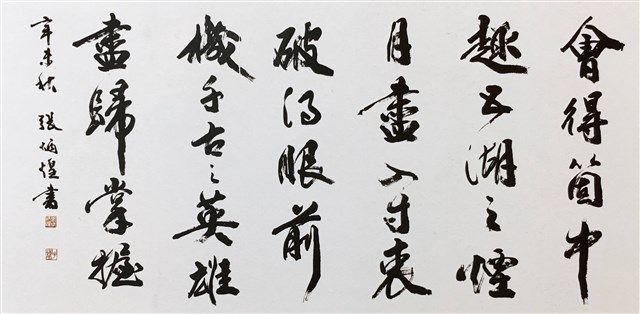 會得箇中
趣五湖之煙
月盡入寸衷
破得眼前
機千古之英雄
盡歸掌握
辛未秋 張炳煌書